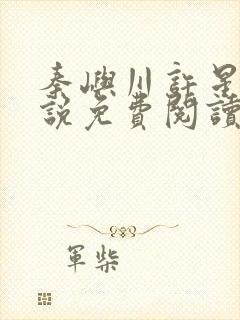 秦嶼川許星
說免費閱讀
軍柴